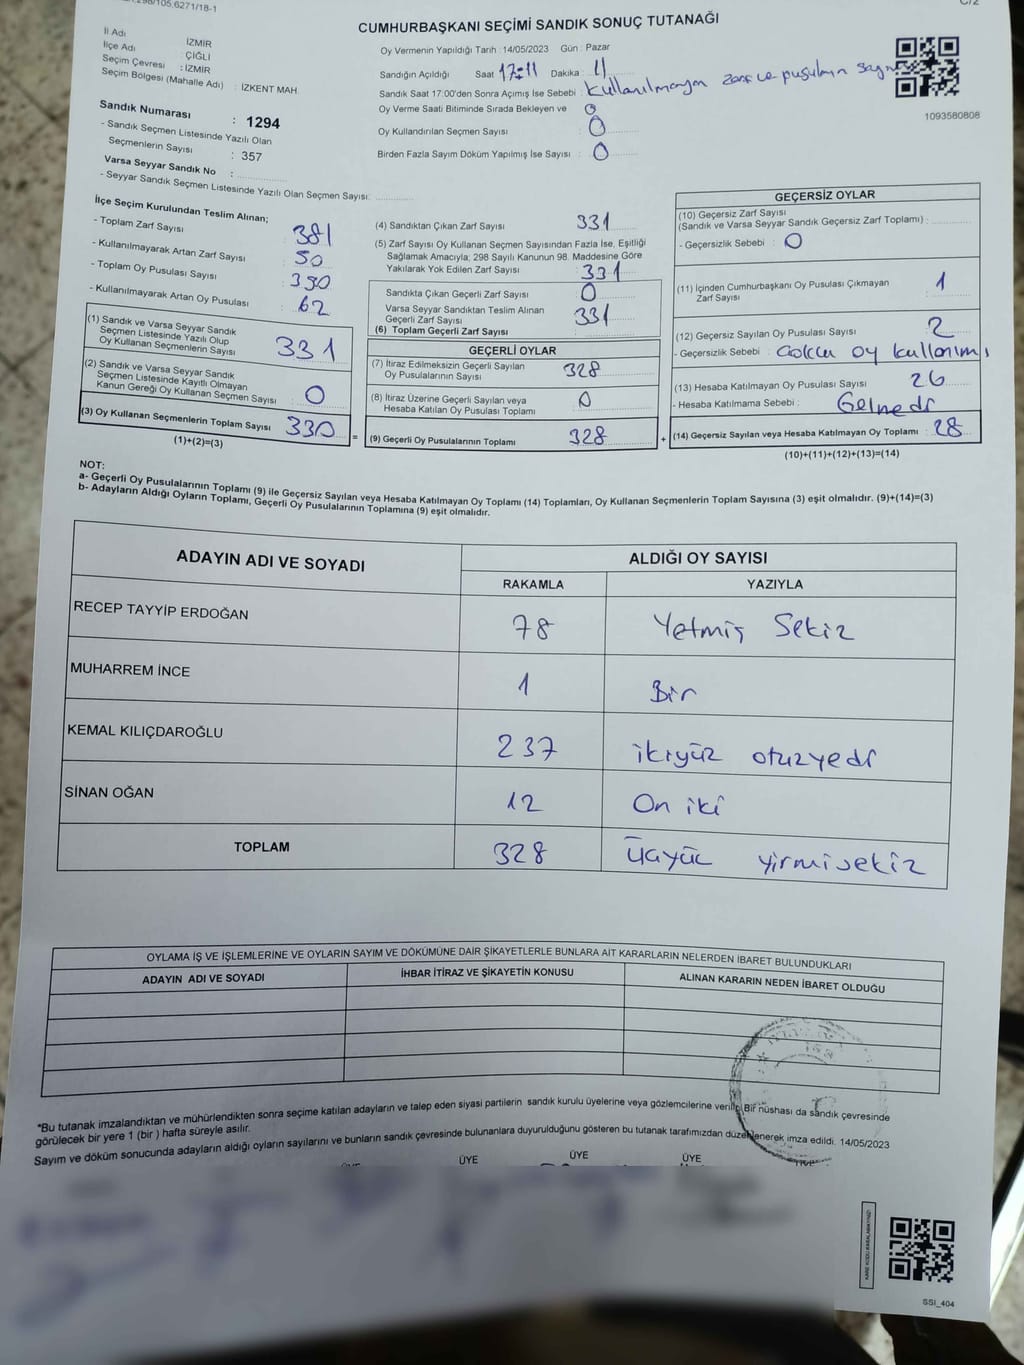 C/2
CUMHURBAŞKANI SEÇİMİ SANDIK SONUÇ TUTANAĞI
İl Adı İZMİR
İlçe Adı : ÇİĞLİ
Seçim Çevresi : İZMİR
Seçim Bölgesi (Mahalle Adı) : İZKENT MAH.
Sandık Numarası : 1294
- Sandık Seçmen Listesinde Yazılı Olan
Seçmenlerin Sayısı : 357
Varsa Seyyar Sandık No :
- Seyyar Sandık Seçmen Listesinde Yazılı Olan Seçmen Sayısı:
Oy Vermenin Yapıldığı Tarih : 14/05/2023 Gün : Pazar
Sandığın Açıldığı Saat 17:11 Dakika : 11
Sandık Saat 17:00'den Sonra Açımış İse Sebebi : Kullanılmayan zarf ve pusulanın sayımı
Oy Verme Saati Bitiminde Sırada Bekleyen ve 0
Oy Kullandırılan Seçmen Sayısı 0
Birden Fazla Sayım Döküm Yapılmış İse Sayısı : 0
1093580808
İlçe Seçim Kurulundan Teslim Alınan;
- Toplam Zarf Sayısı : 381
- Kullanılmayarak Artan Zarf Sayısı : 50
- Toplam Oy Pusulası Sayısı : 390
- Kullanılmayarak Artan Oy Pusulası : 62
(1) Sandık ve Varsa Seyyar Sandık
Seçmen Listesinde Yazılı Olup
Oy Kullanan Seçmenlerin Sayısı : 331
(2) Sandık ve Varsa Seyyar Sandık
Seçmen Listesinde Kayıtlı Olmayan
Kanun Gereği Oy Kullanan Seçmen Sayısı : 0
(3) Oy Kullanan Seçmenlerin Toplam Sayısı 330 =
(1)+(2)=(3)
(4) Sandıktan Çıkan Zarf Sayısı 331
(5) Zarf Sayısı Oy Kullanan Seçmen Sayısından Fazla İse, Eşitliği
Sağlamak Amacıyla; 298 Sayılı Kanunun 98. Maddesine Göre
Yakılarak Yok Edilen Zarf Sayısı : 331
Sandıkta Çıkan Geçerli Zarf Sayısı : 0
Varsa Seyyar Sandıktan Teslim Alınan
Geçerli Zarf Sayısı : 331
(6) Toplam Geçerli Zarf Sayısı
GEÇERLİ OYLAR
(7) İtiraz Edilmeksizin Geçerli Sayılan
Oy Pusulalarının Sayısı : 328
(8) İtiraz Üzerine Geçerli Sayılan veya
Hesaba Katılan Oy Pusulası Toplamı : 0
(9) Geçerli Oy Pusulalarının Toplamı 328 +
GEÇERSİZ OYLAR
(10) Geçersiz Zarf Sayısı
(Sandık ve Varsa Seyyar Sandık Geçersiz Zarf Toplamı) :
- Geçersizlik Sebebi : 0
(11) İçinden Cumhurbaşkanı Oy Pusulası Çıkmayan
Zarf Sayısı : 1
(12) Geçersiz Sayılan Oy Pusulası Sayısı : 2
- Geçersizlik Sebebi : Çoklu oy kullanımı
(13) Hesaba Katılmayan Oy Pusulası Sayısı : 26
- Hesaba Katılmama Sebebi : Gelmedi
(14) Geçersiz Sayılan veya Hesaba Katılmayan Oy Toplamı : 28
(10)+(11)+(12)+(13)=(14)
NOT:
a- Geçerli Oy Pusulalarının Toplamı (9) ile Geçersiz Sayılan veya Hesaba Katılmayan Oy Toplamı (14) Toplamları, Oy Kullanan Seçmenlerin Toplam Sayısına (3) eşit olmalıdır. (9)+(14)=(3)
b- Adayların Aldığı Oyların Toplamı, Geçerli Oy Pusulalarının Toplamına (9) eşit olmalıdır.
ADAYIN ADI VE SOYADI ALDIĞI OY SAYISI
RAKAMLA YAZIYLA
RECEP TAYYİP ERDOĞAN 78 Yetmiş Sekiz
MUHARREM İNCE 1 Bir
KEMAL KILIÇDAROĞLU 237 ikiyüz otuzyedi
SİNAN OĞAN 12 On iki
TOPLAM 328 Üçyüz yirmisekiz
OYLAMA İŞ VE İŞLEMLERİNE VE OYLARIN SAYIM VE DÖKÜMÜNE DAİR ŞİKAYETLERLE BUNLARA AİT KARARLARIN NELERDEN İBARET BULUNDUKLARI
ADAYIN ADI VE SOYADI İHBAR İTİRAZ VE ŞİKAYETİN KONUSU ALINAN KARARIN NEDEN İBARET OLDUĞU
*Bu tutanak imzalandıktan ve mühürlendikten sonra seçime katılan adayların ve talep eden siyasi partilerin sandık kurulu üyelerine veya gözlemcilerine verilip Bir nüshası da sandık çevresinde
görülecek bir yere 1 (bir ) hafta süreyle asılır.
Sayım ve döküm sonucunda adayların aldığı oyların sayılarını ve bunların sandık çevresinde bulunanlara duyurulduğunu gösteren bu tutanak tarafımızdan düzenlenerek imza edildi. 14/05/2023
ÜYE ÜYE ÜYE
SSI_404